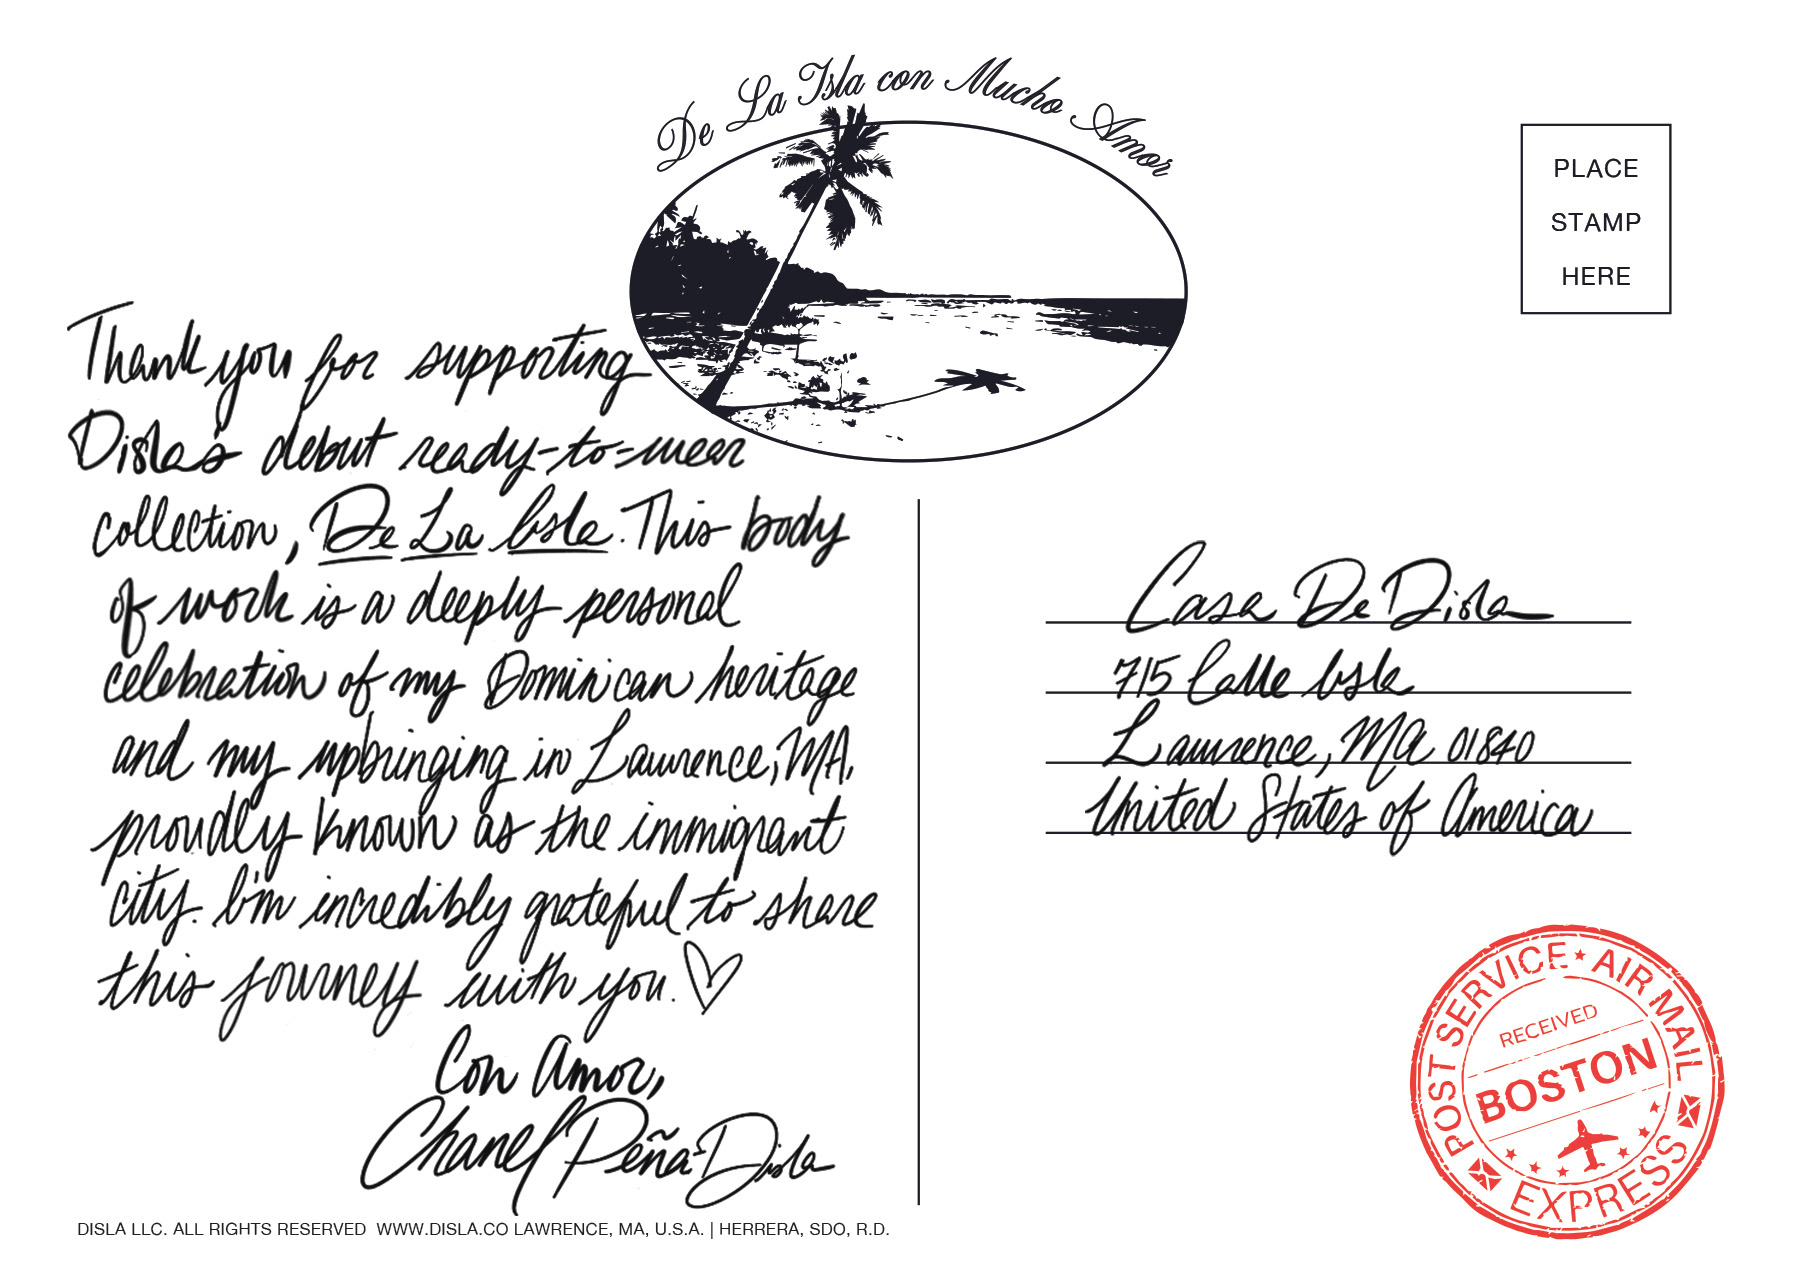 De La Isla con Mucho Amor
PLACE
STAMP
HERE
Thank you for supporting
Disla's debut ready-to-wear
collection, De La Isla. This body
of work is a deeply personal
celebration of my Dominican heritage
and my upbringing in Lawrence, MA,
proudly known as the immigrant
city. I'm incredibly grateful to share
this journey with you.
Con Amor,
Chanel Peña-Disla
Casa De Disla
715 Calle Isla
Lawrence, MA 01840
United States of America
POST SERVICE AIR MAIL
RECEIVED
BOSTON
EXPRESS
DISLA LLC. ALL RIGHTS RESERVED WWW.DISLA.CO LAWRENCE, MA, U.S.A. | HERRERA, SDO, R.D.